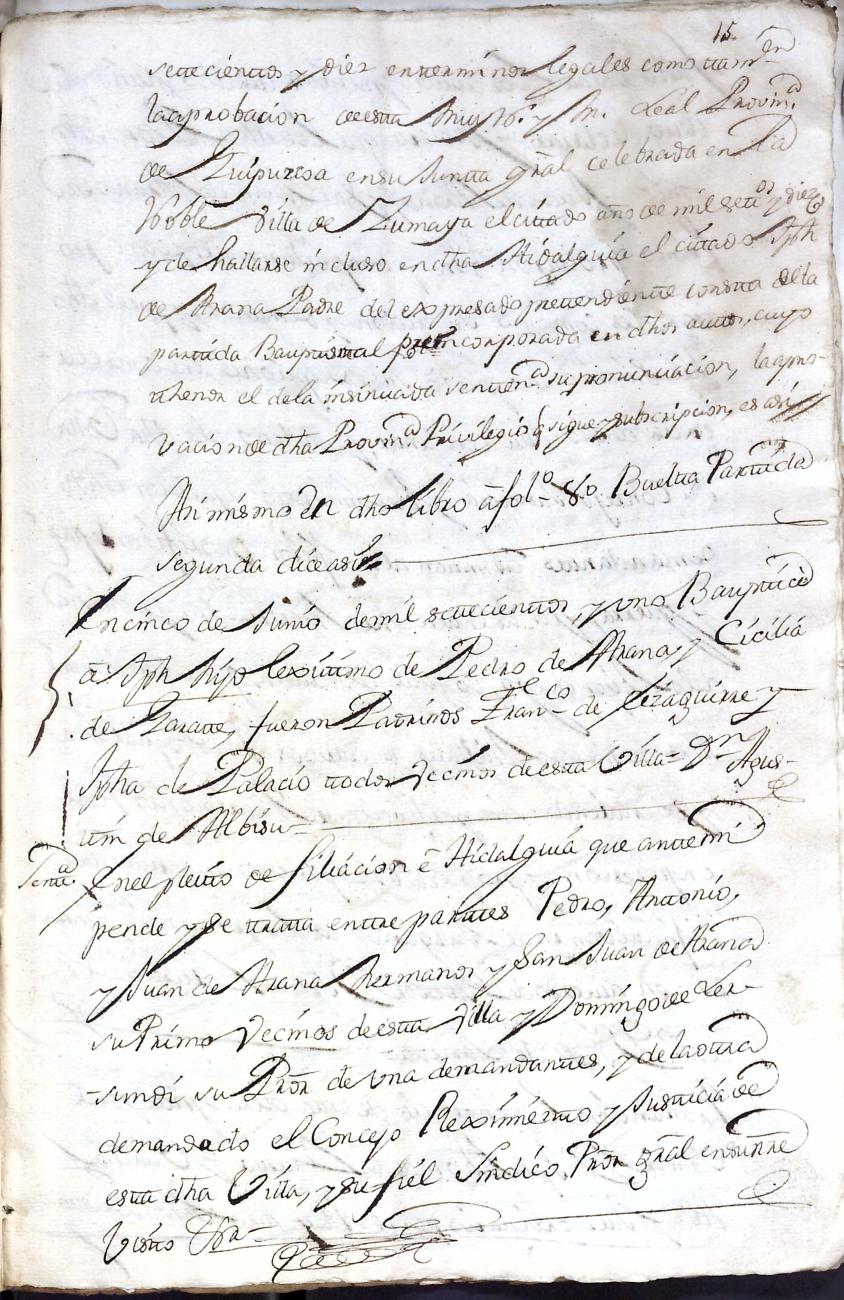 15.
settecienttos y diez en terminos legales como ttamn. en
la aprobacion de esta Muy Ne. y M. Leal Provina.
de Guipuzcoa en su Juntta gral celebrada en la
Noble Villa de Zumaya el cittado año de mil setos. y diez
y de hallarse incluso en dha Hidalguia el cittado Jph
de Arana Padre del expresado prettendientte constta de la
parttida Bauptismal incorporada en dhos auttos, cuyo
thenor el de la insinuada senttena. su pronunciacion, la apro-
vacion de dha Provina. Privilegio q sigue y subscripcion, es asi
Asimismo En dho libro a folo. 80 Buelta Parttida
segunda dice asi
En cinco de Junio de mil settecienttos y uno Baupticè
a Jph hijo lexittimo de Pedro de Arana y Cicilia
de Garatte, fueron Padrinos Franco. de Eizaguirre y
Jpha de Palacio ttodos Vecinos de esta Villa = Dn Agus-
tin de Albisu
Sentta. En el pleitto de filiacion e Hidalguia que antte mi
pende y se ttratta enttre parttes Pedro, Anttonio,
y Juan de Arana Hermanos y San Juan de Arana
su Primo Vecinos de estta Villa y Domingo de Ler-
sundi su Pror. de una demandanttes, y de la ottra
demandado el Concejo Reximientto y Justticia de
estta dha Villa, y su fiel Sindico Pror gral en su nre
Vistto &a